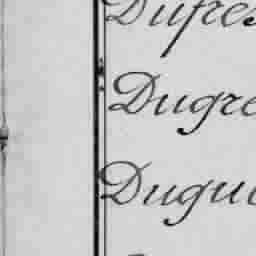 Dufres
Dugre
Dugu